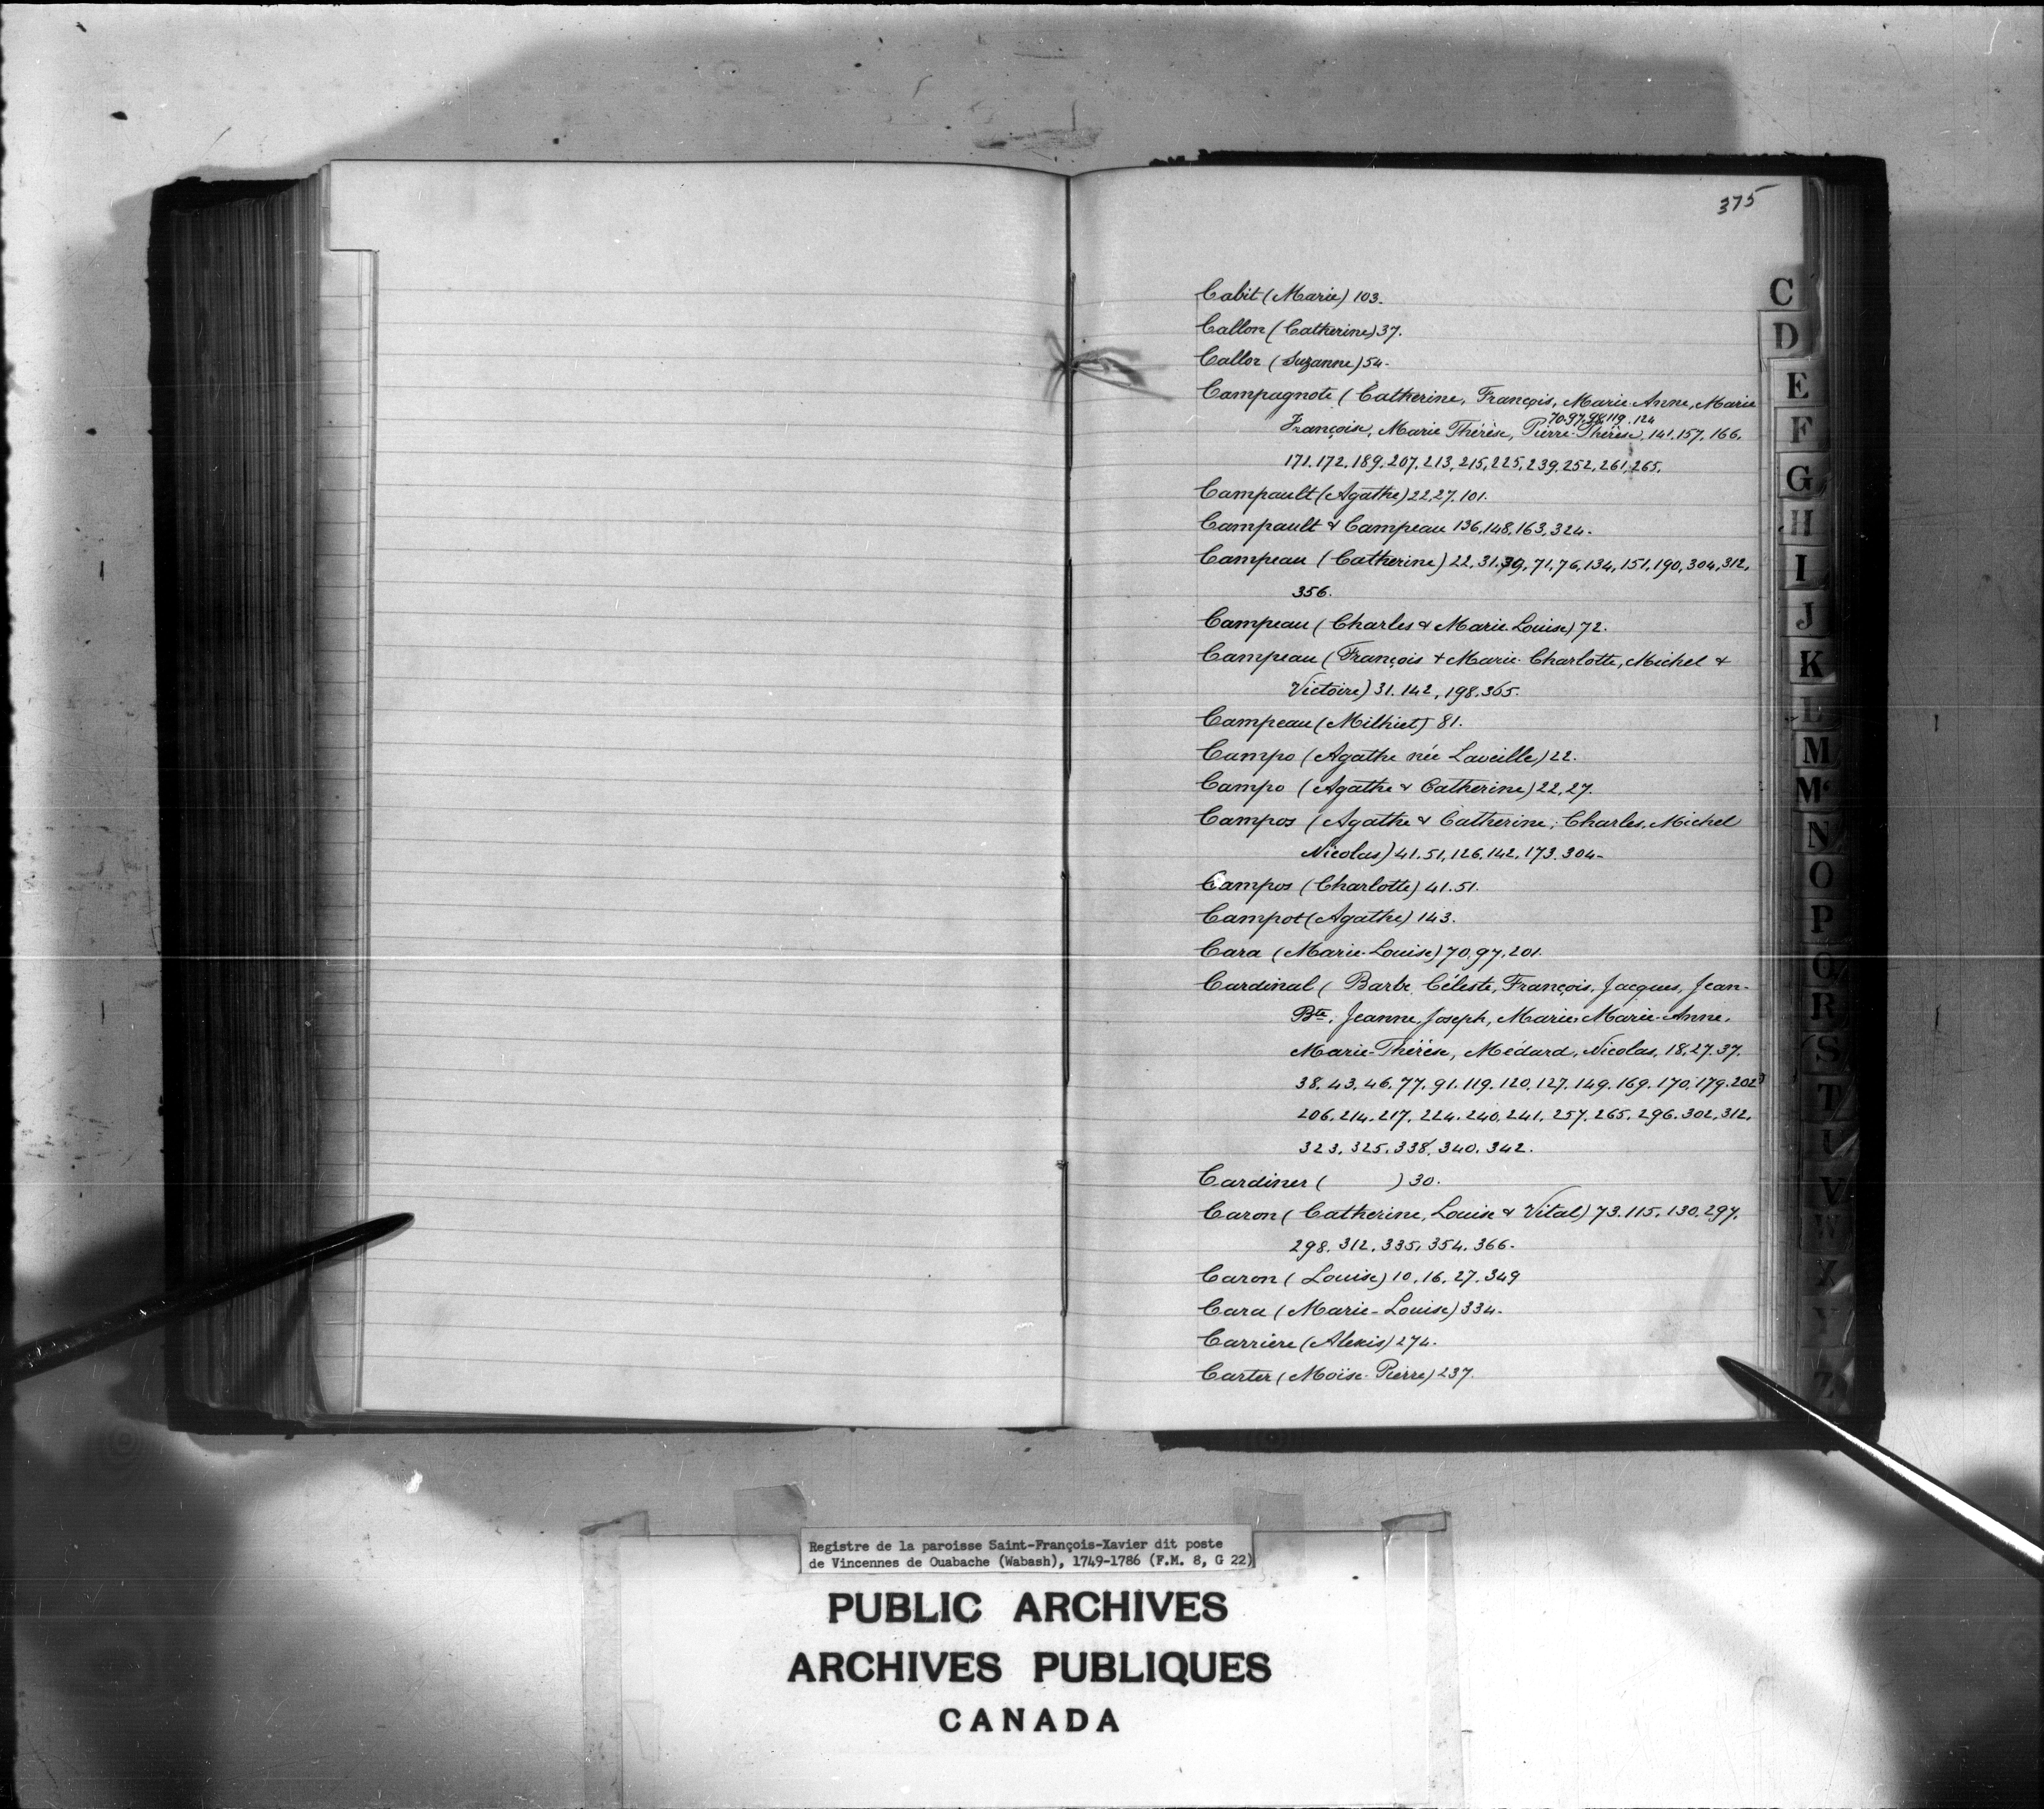 375
Cabit (Marie) 103.
Callon (Catherine) 37.
Callor (Suzanne) 54.
Campagnote (Catherine, François, Marie-Anne, Marie
70.97.98.119.124
Françoise, Marie Thérèse, Pierre-Thérèse, 141.157.166.
171.172.189.207.213.215.225.239.252.261.265.
Campault (Agathe) 22.27.101.
Campault & Campeau 136.148.163.324.
Campeau (Catherine) 22.31.39.71.76.134.151.190.304.312.
356.
Campeau (Charles & Marie-Louise) 72.
Campeau (François & Marie-Charlotte, Michel &
Victoire) 31.142.198.365.
Campeau (Milhiet) 81.
Campo (Agathe née Laveille) 22.
Campo (Agathe & Catherine) 22.27.
Campos (Agathe & Catherine; Charles, Michel
Nicolas) 41.51.126.142.173.304.
Campos (Charlotte) 41.51.
Campot (Agathe) 143.
Cara (Marie-Louise) 70.97.201.
Cardinal (Barbe, Céleste, François, Jacques, Jean-
Bte, Jeanne, Joseph, Marie, Marie-Anne,
Marie-Thérèse, Médard, Nicolas, 18.27.37.
38.43.46.77.91.119.120.127.149.169.170.179.202
206.214.217.224.240.241.257.265.296.302.312.
323.325.338.340.342.
Cardiner ( ) 30.
Caron (Catherine, Louise & Vital) 73.115.130.297.
298.312.335.354.366.
Caron (Louise) 10.16.27.349
Cara (Marie-Louise) 334.
Carrière (Alexis) 274.
Carter (Moïse-Pierre) 237.
C
D
E
F
G
H
I
J
K
L
M
Mc
N
O
P
Q
R
S
T
U
V
W
X
Y
Z
Registre de la paroisse Saint-François-Xavier dit poste
de Vincennes de Ouabache (Wabash), 1749-1786 (F.M. 8, G 22)
PUBLIC ARCHIVES
ARCHIVES PUBLIQUES
CANADA